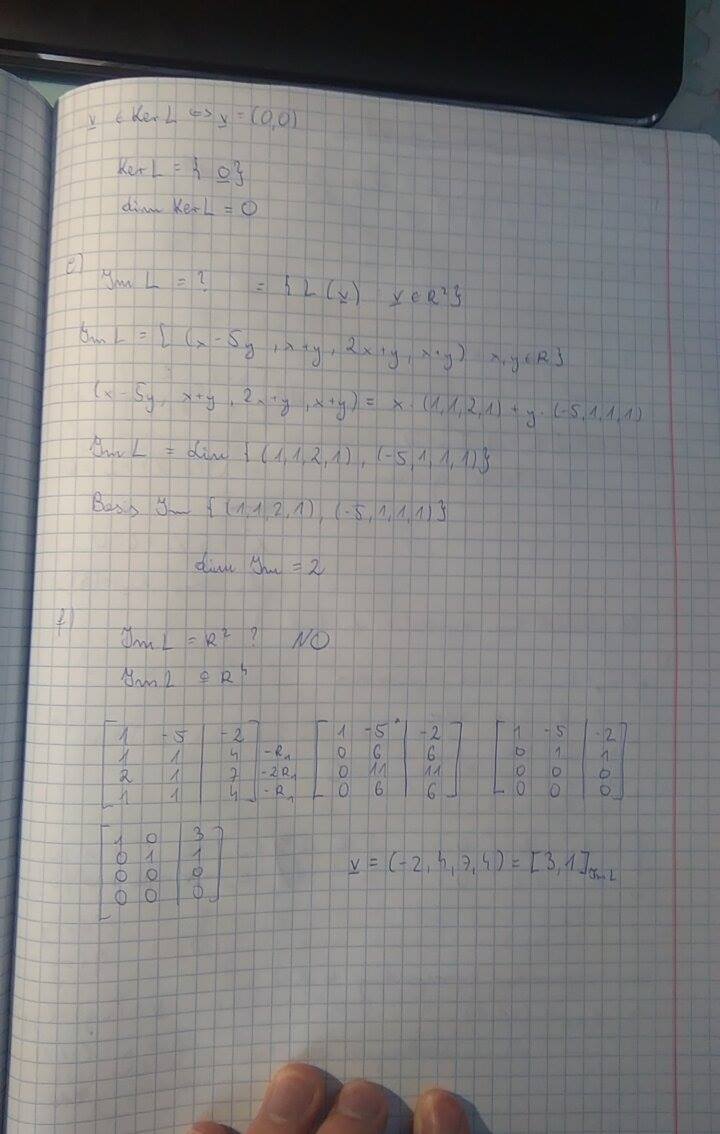 v ∈ Ker L ⇔ v = (0,0)
Ker L = { 0 }
dim Ker L = 0
e) Im L = ? = { L (v) v ∈ R² }
Im L = { (x - 5y , x+y , 2x+y , x+y) x, y ∈ R }
(x - 5y, x+y , 2x+y , x+y) = x · (1,1,2,1) + y · (-5,1,1,1)
Im L = Lin { (1,1,2,1) , (-5,1,1,1) }
Basis Im { (1,1,2,1) , (-5,1,1,1) }
dim Im = 2
f)
Im L = R² ? NO
Im L ⊆ R⁴
[ 1 -5 | -2 ] [ 1 -5 | -2 ] [ 1 -5 | -2 ]
[ 1 1 | 4 ] -R₁ [ 0 6 | 6 ] [ 0 1 | 1 ]
[ 2 1 | 7 ] -2R₁ [ 0 11 | 11 ] [ 0 0 | 0 ]
[ 1 1 | 4 ] -R₁ [ 0 6 | 6 ] [ 0 0 | 0 ]
[ 1 0 | 3 ]
[ 0 1 | 1 ] v = (-2, 4, 7, 4) = [3, 1] Im L
[ 0 0 | 0 ]
[ 0 0 | 0 ]